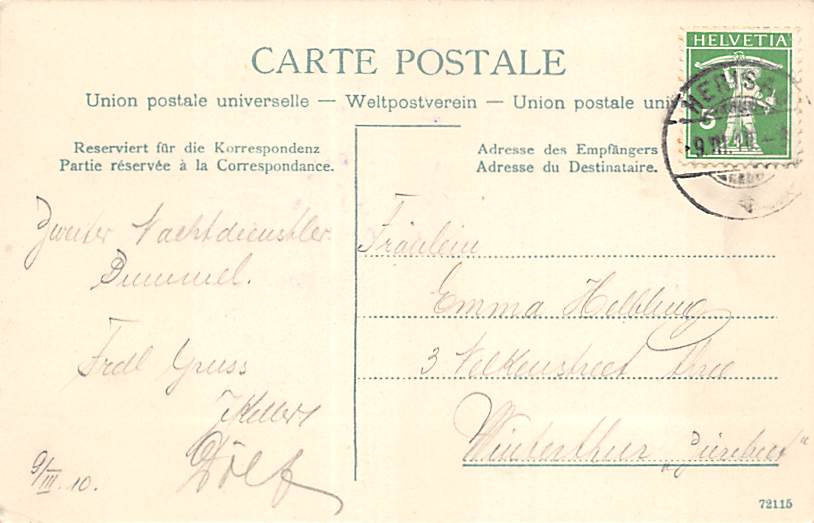 CARTE POSTALE
Union postale universelle — Weltpostverein — Union postale uni
HELVETIA
5
HERISA
9.III.10
Reserviert für die Korrespondenz
Partie réservée à la Correspondance.
Adresse des Empfängers
Adresse du Destinataire.
Zweiter Nachtdienstler
Bummel.
Frdl Gruss
JKeller
Dölf
9/III.10.
Fräulein
Emma Helbling
3 Nelkenstreet
Winterthur
72115